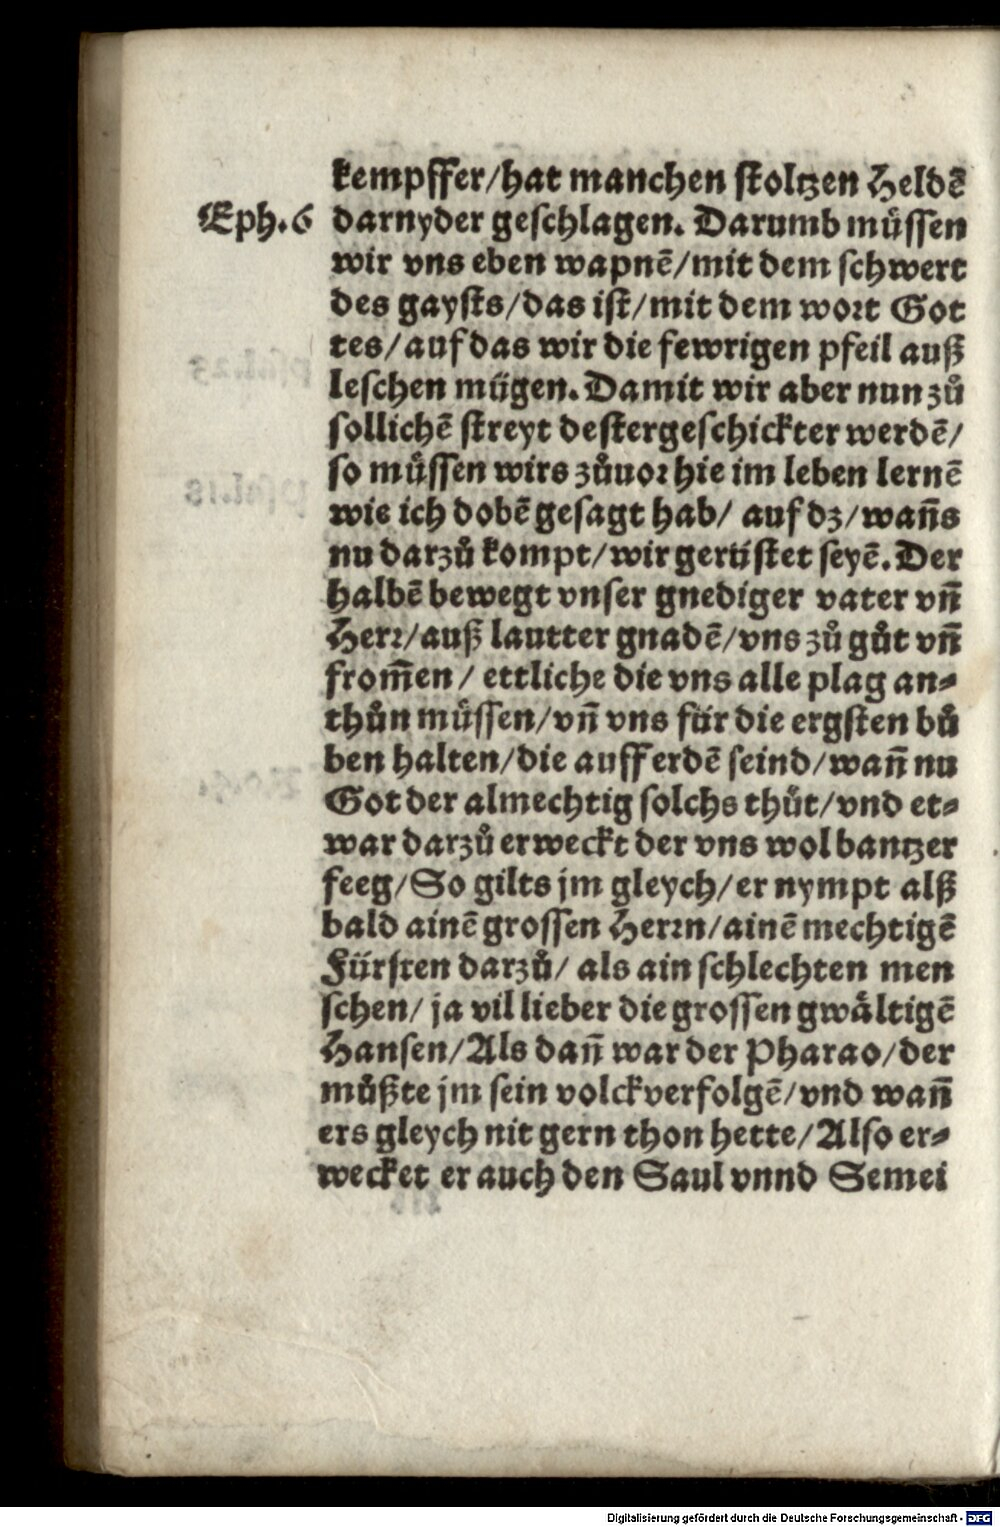 kempffer/hat manchen stoltzen Heldē
Eph.6 darnyder geschlagen. Darumb müssen
wir vns eben wapnē/mit dem schwert
des gaysts/das ist/mit dem wort Got
tes/auf das wir die fewrigen pfeil auß
leschen mügen. Damit wir aber nun zů
sollichē streyt destergeschickter werdē/
so müssen wirs zůuor hie im leben lernē
wie ich dobē gesagt hab/ auf dz/wañs
nu darzů kompt/wir gerüstet seyē. Der
halbē bewegt vnser gnediger vater vñ
Herr/auß lautter gnadē/vns zů gůt vñ
from̃en/ ettliche die vns alle plag an⸗
thůn müssen/vñ vns für die ergsten bů
ben halten/die auff erdē seind/wañ nu
Got der almechtig solchs thůt/vnd et⸗
war darzů erweckt der vns wol bantzer
feeg/So gilts jm gleych/er nympt alß
bald ainē grossen Herrn/ainē mechtigē
Fürsten darzů/ als ain schlechten men
schen/ ja vil lieber die grossen gwåltigē
Hansen/Als dañ war der Pharao/der
müßte jm sein volck verfolgē/vnd wañ
ers gleych nit gern thon hette/Also er⸗
wecket er auch den Saul vnnd Semei
Digitalisierung gefördert durch die Deutsche Forschungsgemeinschaft - DFG